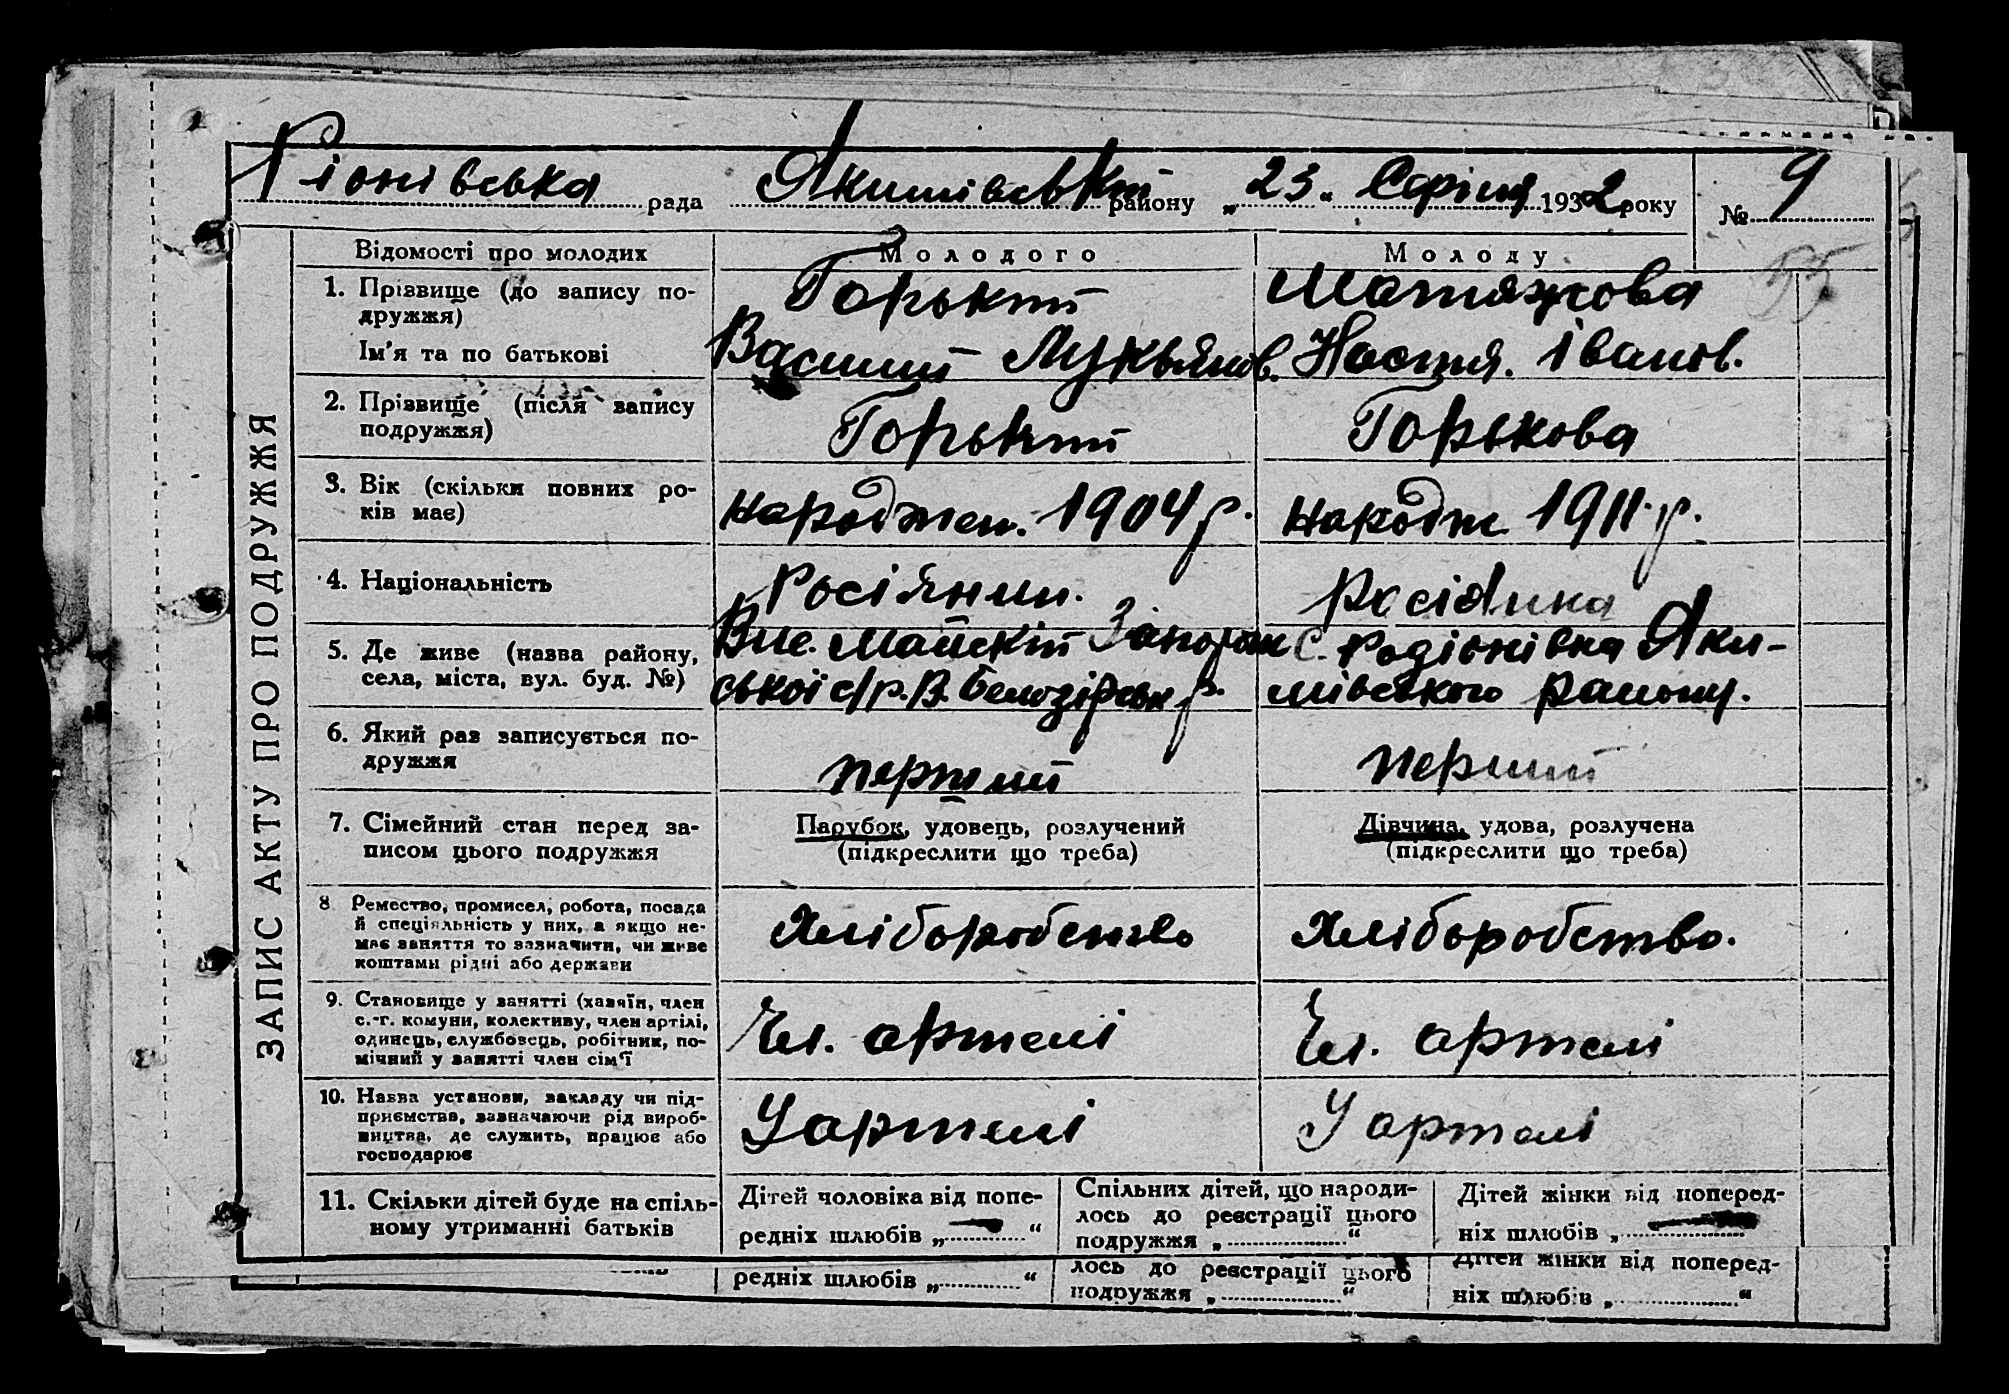 Ріонівська рада Якимівськ району „23“ Серпня 1932 року № 9
55
ЗАПИС АКТУ ПРО ПОДРУЖЖЯ
Відомості про молодих Молодого Молоду
1. Прізвище (до запису по-
дружжя)
Горький Матяжова
Ім'я та по батькові Василий Лукьянов. Настя. Іванов.
2. Прізвище (після запису
подружжя)
Горький Горькова
3. Вік (скільки повних ро-
ків має)
народжен. 1904 р. народж 1911 р.
4. Національність Росіянин. Росіянка
5. Де живе (назва району,
села, міста, вул. буд. №)
Вис. Майский Запорож с. Родіонівка Яки-
ської с/р. В. Белозірськ р. мівського району.
6. Який раз записується по-
дружжя
перший перший
7. Сімейний стан перед за-
писом цього подружжя
Парубок, удовець, розлучений
(підкреслити що треба)
Дівчина, удова, розлучена
(підкреслити що треба)
8 Ремество, промисел, робота, посада
й спеціяльність у них, а якщо не-
має заняття то зазначити, чи живе
коштами рідні або держави
Хліборобство Хліборобство.
9. Становище у занятті (хазяїн, член
с.-г. комуни, колективу, член артілі,
одинець, службовець, робітник, по-
мічний у занятті член сім'ї
Чл. артелі Чл. артелі
10. Назва установи, закладу чи під-
приємства, зазначаючи рід вироб-
ництва, де служить, працює або
господарює
У артелі У артелі
11. Скільки дітей буде на спіль-
ному утриманні батьків
Дітей чоловіка від попе-
редніх шлюбів „ “
Спільних дітей, що народи-
лось до реєстрації цього
подружжя „ “
Дітей жінки від поперед-
ніх шлюбів „
редніх шлюбів „ “
лось до реєстрації цього
подружжя „ “
Дітей жінки від поперед-
ніх шлюбів „ “